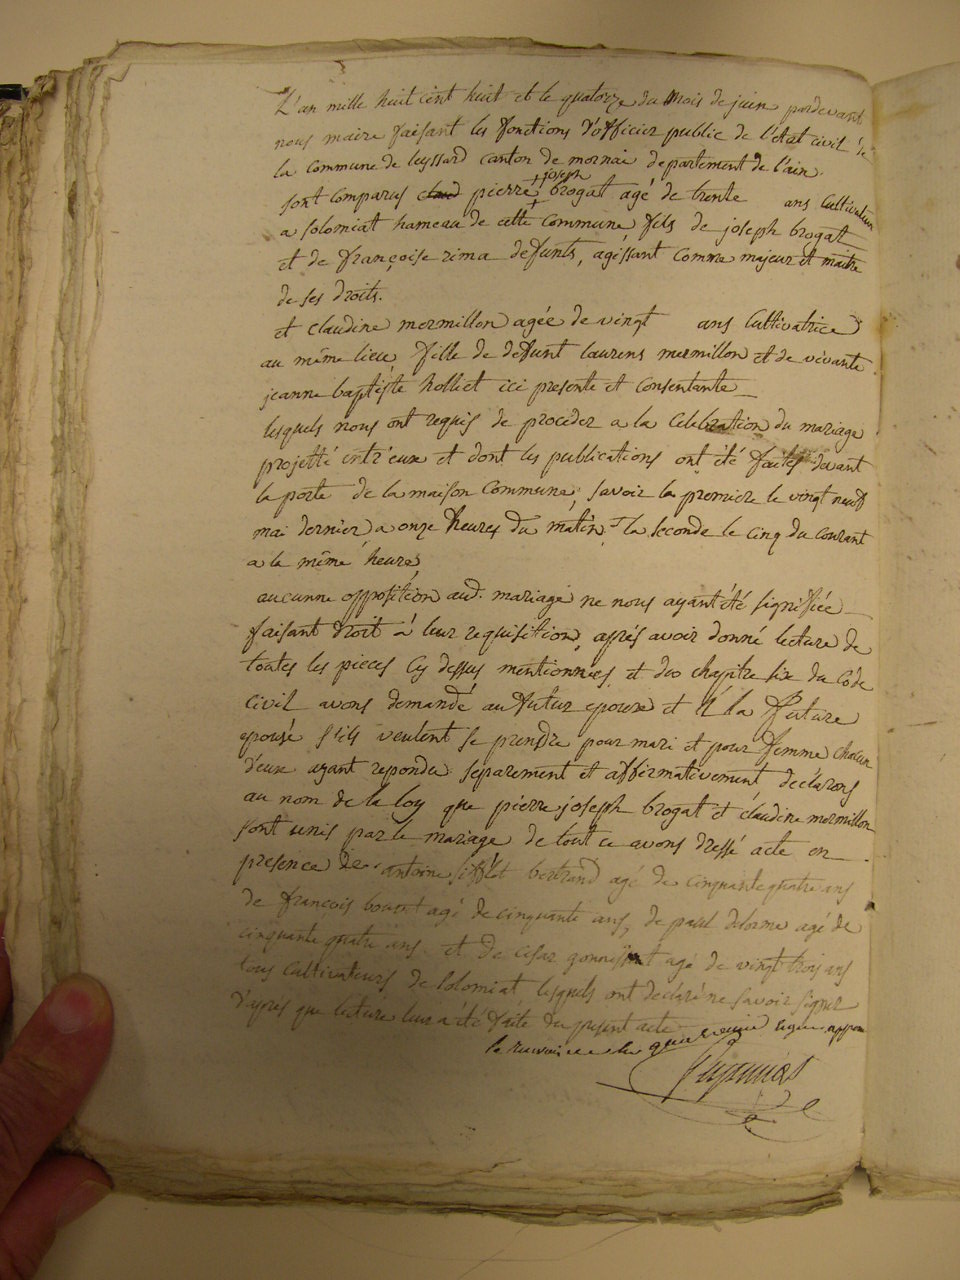 L'an mille huit cent huit et le quatorze du mois de juin pardevant
nous maire faisant les fonctions d'officier public de l'état civil de
la Commune de leyssard canton de mornai departement de l'ain
joseph
sont comparus claud pierre + brogat agé de trente ans Cultivateur
a solomiat hameau de cette Commune fils de joseph brogat
et de françoise rima defunts, agissant comme majeur et maitre
de ses droits.
et claudine mermillon agée de vingt ans Cultivatrice
au même lieu fille de défunt laurens mermillon et de vivante
jeanne baptiste holliet ici presente et Consentante
lesquels nous ont requis de proceder a la Celebration du mariage
projetté entr'eux et dont les publications ont été faites devant
la porte de la maison Commune, savoir la premiere le vingt neuf
mai dernier a onze heures du matin la seconde le cinq du courant
a la même heure,
aucunne opposition aud. mariage ne nous ayant été signifiée
faisant droit à leur requisition, après avoir donné lecture de
toutes les pieces Cy dessus mentionnées et du chapitre six du Code
Civil avons demandé au futur epoux et à la future
epouse s'ils veulent se prendre pour mari et pour femme chacun
d'eux ayant repondu separement et affirmativement declarons
au nom de la loy que pierre joseph brogat et claudine mermillon
sont unis par le mariage de tout ce avons dressé acte en
presence de antoine bertrand agé de cinquante quatre ans
de francois agé de cinquante ans, de paul delorme agé de
cinquante quatre ans et de cesar agé de vingt trois ans
tous Cultivateurs de solomiat lesquels ont declaré ne savoir signer
d'après que lecture leur a été faite du present acte